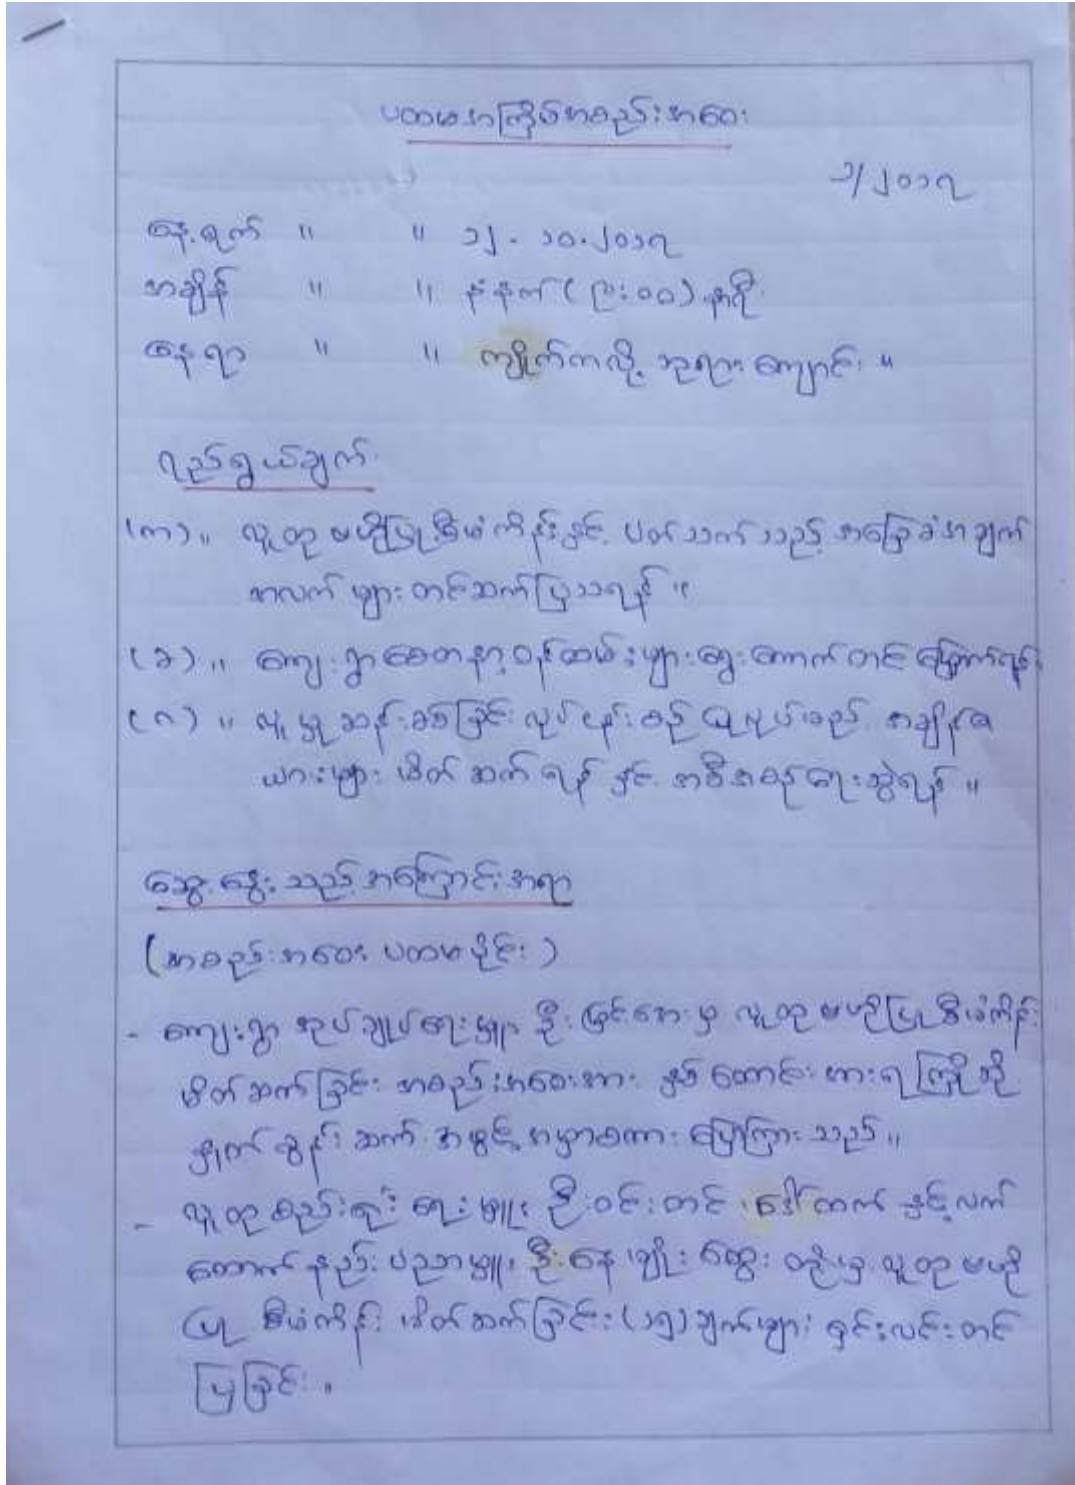 ပထမအကြိမ်အစည်းအဝေး
၁/၂၀၁၇
နေ့ရက် ။ ။ ၁၂. ၁၀.၂၀၁၇
အချိန် ။ ။ နံနက် ( ၉:၀၀ ) နာရီ
နေရာ ။ ။ ကျိုက်ကလို့ ဘုရားကျောင်း ။
ရည်ရွယ်ချက်
(က) ။ လူထုဗဟိုပြုစီမံကိန်းနှင့် ပတ်သက်သည့် အခြေခံအချက်
အလက်များ တင်ဆက်ပြသရန် ။
(ခ) ။ ကျေးရွာစေတနာ့ဝန်ထမ်းများ ရွေးကောက်တင်မြှောက်ရန်
(ဂ) ။ လူမှုဆန်းစစ်ခြင်း လုပ်ငန်းစဉ် ပြုလုပ်မည့် အချိန်ဇ
ယားများ မိတ်ဆက်ရန် နှင့် အစီအစဉ်ရေးဆွဲရန် ။
ဆွေးနွေးသည့်အကြောင်းအရာ
(အစည်းအဝေး ပထမပိုင်း )
- ကျေးရွာ အုပ်ချုပ်ရေးမှူး ဦးမြင့်အေးမှ လူထုဗဟိုပြုစီမံကိန်း
မိတ်ဆက်ခြင်း အစည်းအဝေးအား နှစ်ထောင်းအားရ ကြိုဆို
နှုတ်ခွန်းဆက် အဖွင့်အမှာစကား ပြောကြားသည် ။
- လူထုစည်းရုံးရေးမှူး ဦးဝင်းတင် ၊ ဒေါ်ထက် နှင့် လက်
ထောက် နည်းပညာမှူး ဦးနေမျိုးထွေး တို့မှ လူထုဗဟို
ပြု စီမံကိန်း မိတ်ဆက်ခြင်း (၁၅) ချက်များ ရှင်းလင်းတင်
ပြခြင်း ။